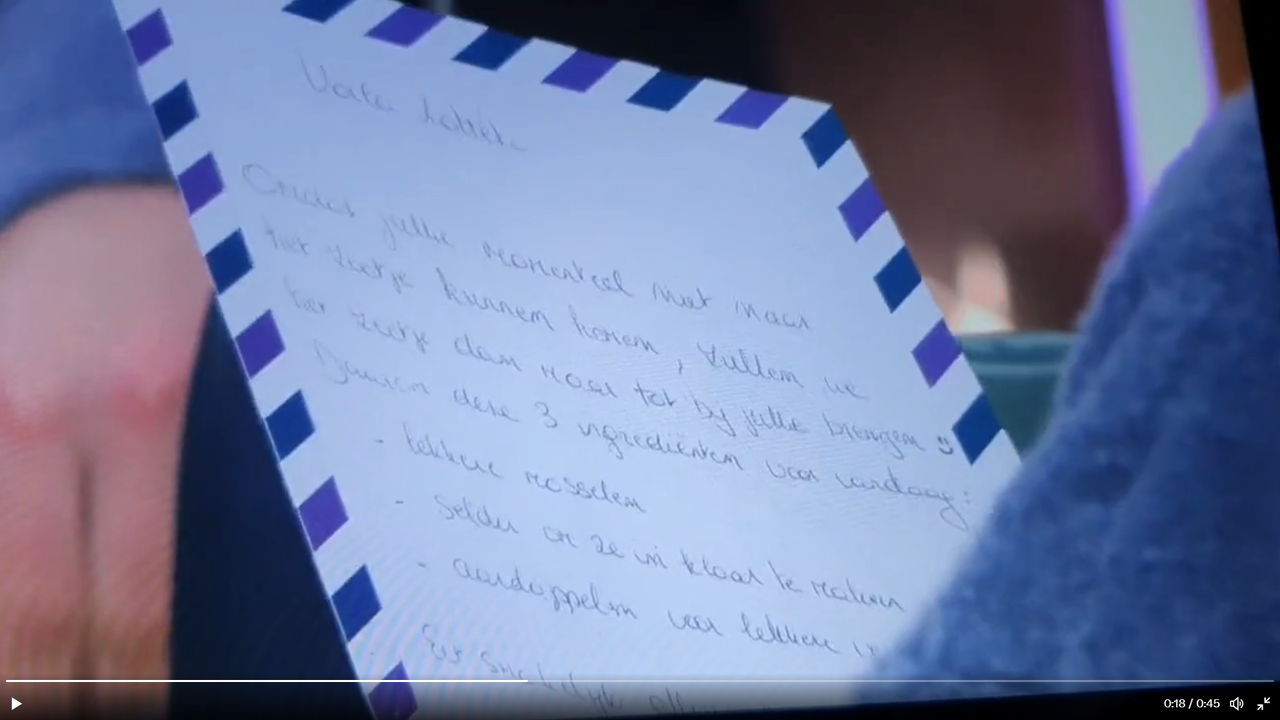 Omdat jullie momenteel niet naar
het zeetje kunnen komen, zullen we
het zeetje dan maar tot bij jullie brengen
Daarom deze 3 ingrediënten voor vandaag:
- lekkere mosselen
- Selder om ze in klaar te maken
- aardappelen voor lekkere
0:18 / 0:45